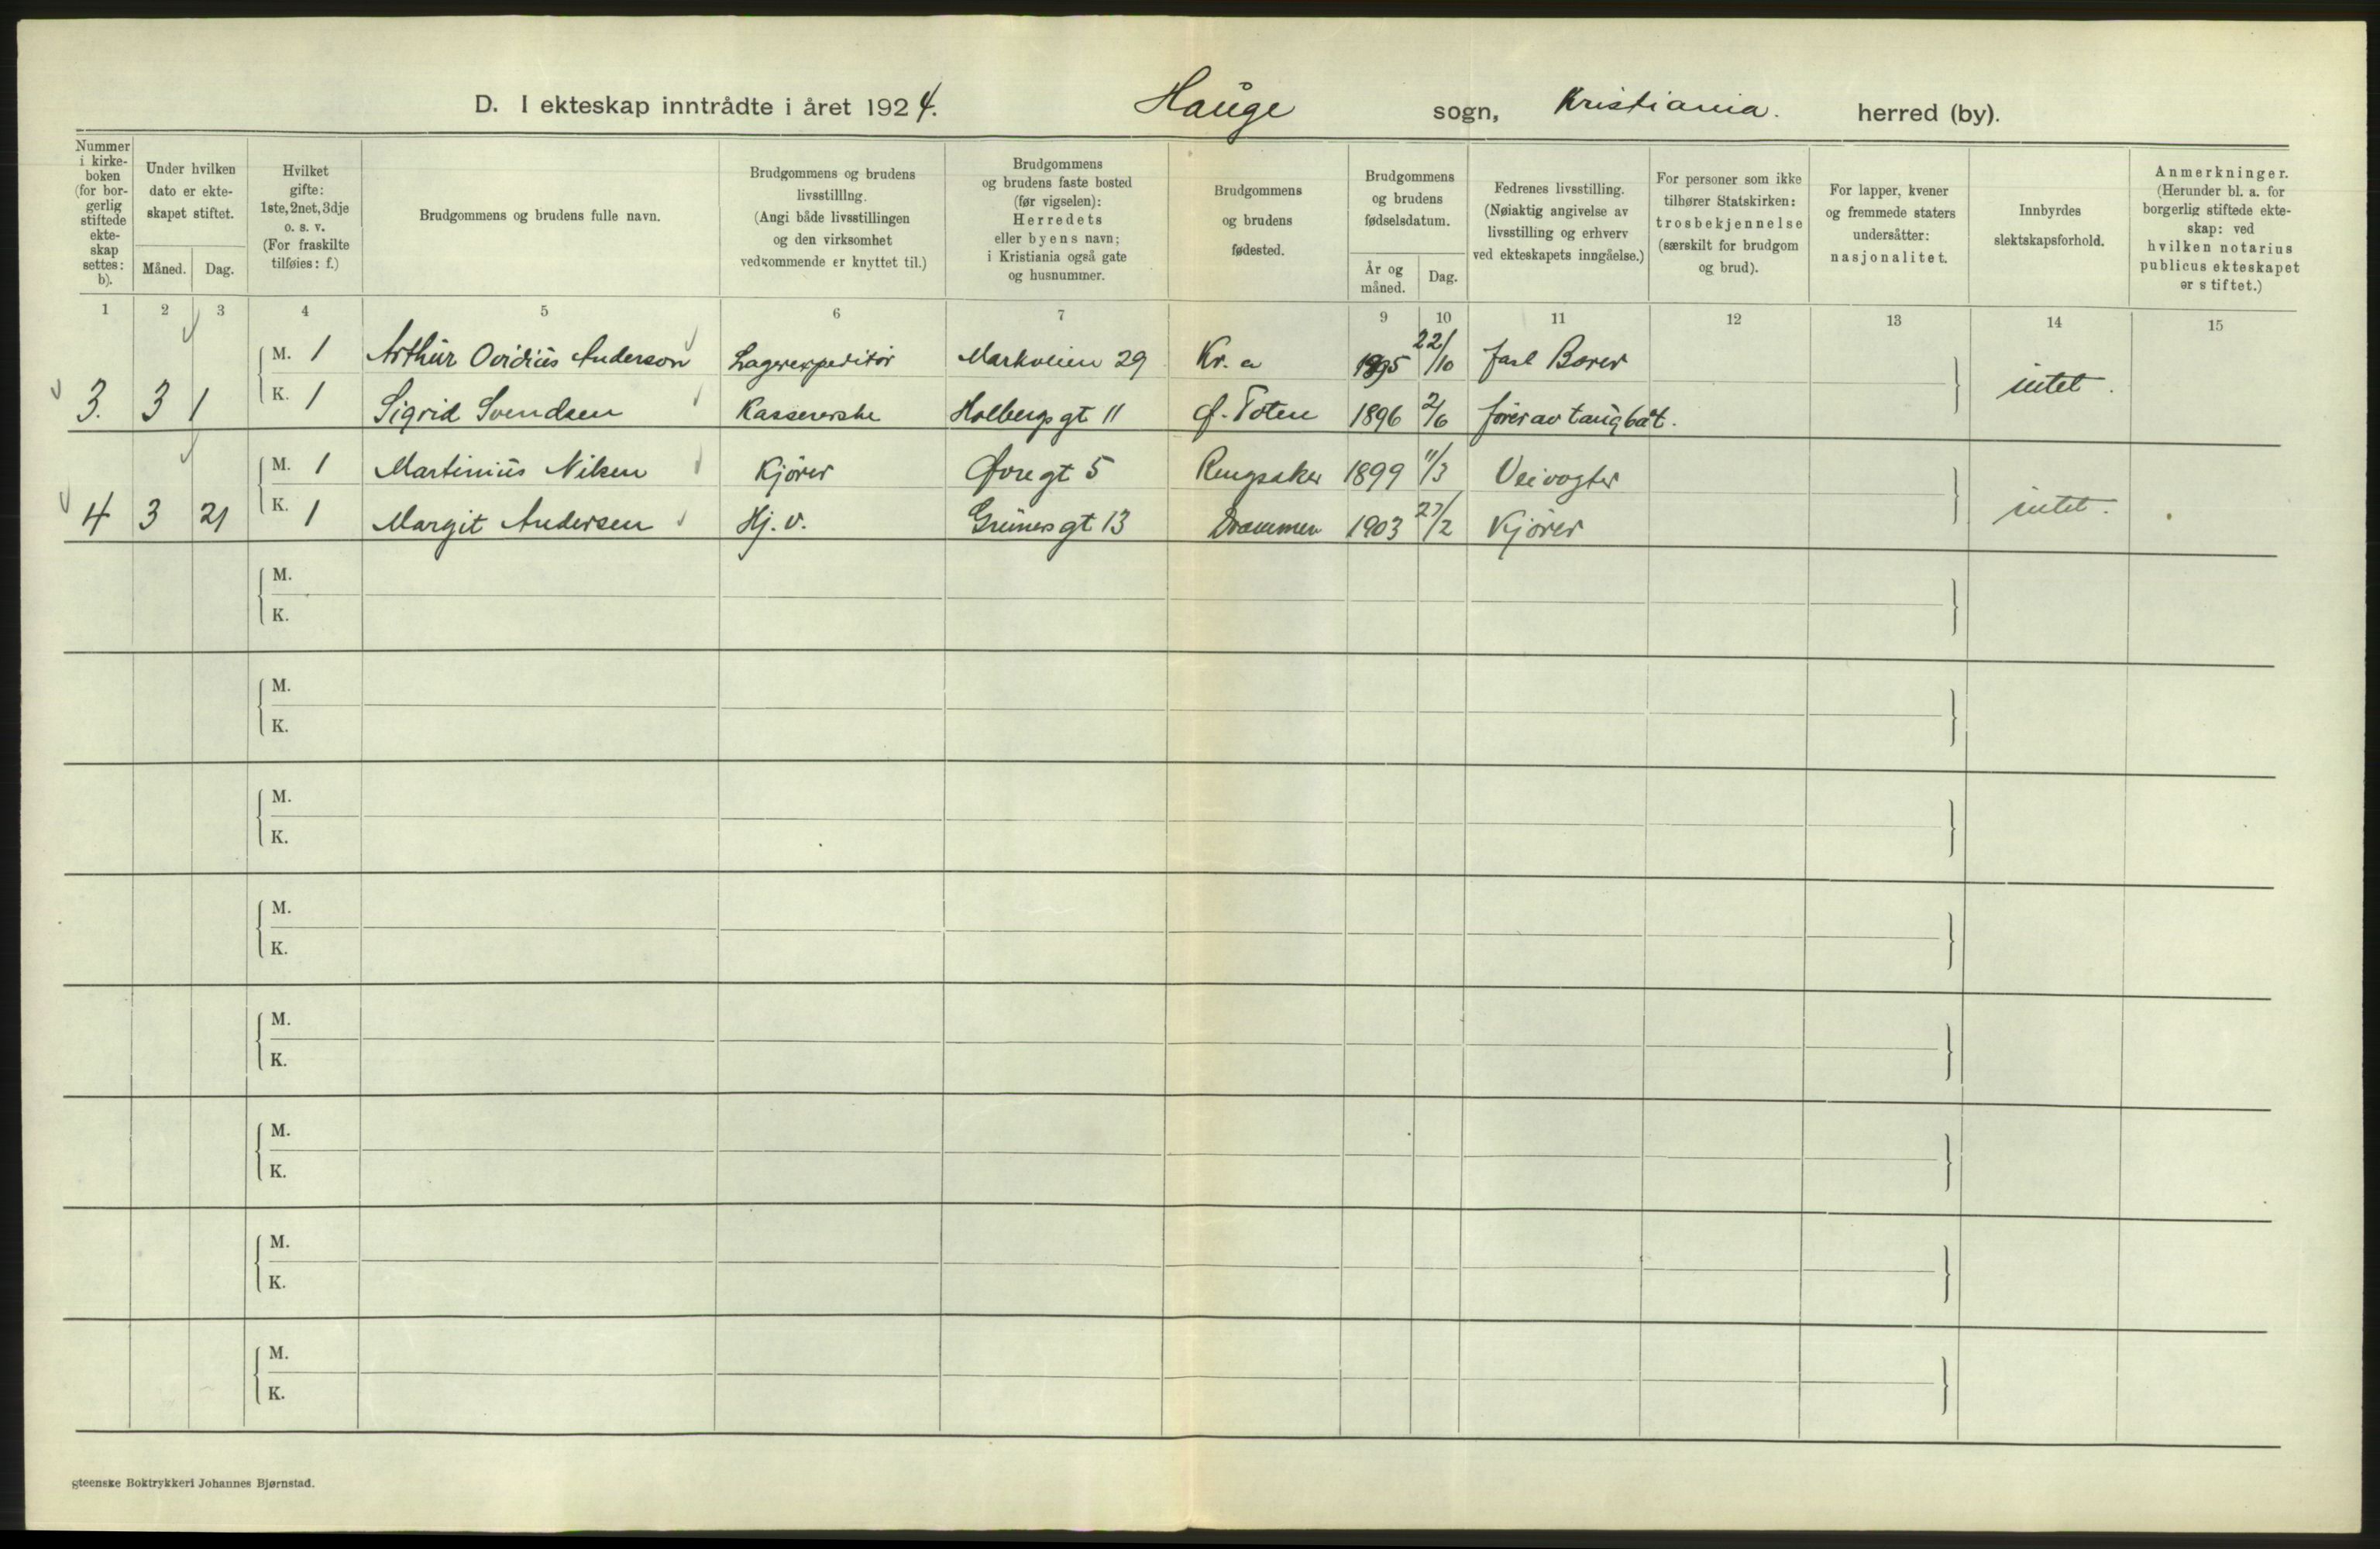 D. I ekteskap inntrådte i året 1924. Hauge sogn, Kristiania. herred (by).
Nummer i kirke- boken (for bor- gerlig stiftede ekte- skap settes: b).
Under hvilken dato er ekte- skapet stiftet.
Måned. Dag.
Hvilket gifte: 1ste, 2net, 3dje o. s. v. (For fraskilte tilføies: f.)
Brudgommens og brudens fulle navn.
Brudgommens og brudens livsstillIng. (Angi både livsstillingen og den virksomhet vedkommende er knyttet til.)
Brudgommens og brudens faste bosted (før vigselen): Herredets eller byens navn; i Kristiania også gate og husnummer.
Brudgommens og brudens fødested.
Brudgommens og brudens fødselsdatum.
År og måned. Dag.
Fedrenes livsstilling. (Nøiaktig angivelse av livsstilling og erhverv ved ekteskapets inngåelse.)
For personer som ikke tilhører Statskirken: trosbekjennelse (særskilt for brudgom og brud).
For lapper, kvener og fremmede staters undersåtter: nasjonalitet.
Innbyrdes slektskapsforhold.
Anmerkninger. (Herunder bl. a. for borgerlig stiftede ekte- skap: ved hvilken notarius publicus ekteskapet er stiftet.)
1 2 3 4 5 6 7 9 10 11 12 13 14 15
M. 1 Arthur Ovidius Anderson Lagerexpeditør Markveien 29 Kr. a 1895 22/10
3. 3 1 K. 1 Sigrid Svendsen Kassererske Holbergs gt 11 Ø. Toten 1896 2/6 fører av taugbåt. intet.
M. 1 Martinius Nilsen Kjører Øvre gt 5 Ringsaker 1899 11/3 Veivogter
4 3 21 K. 1 Margit Andersen Hj. v. Grüners gt 13 Drammen 1903 27/2 Kjører intet.
M.
K.
M.
K.
M.
K.
M.
K.
M.
K.
M.
K.
M.
K.
M.
K.
gteenske Boktrykkeri Johannes Bjørnstad.